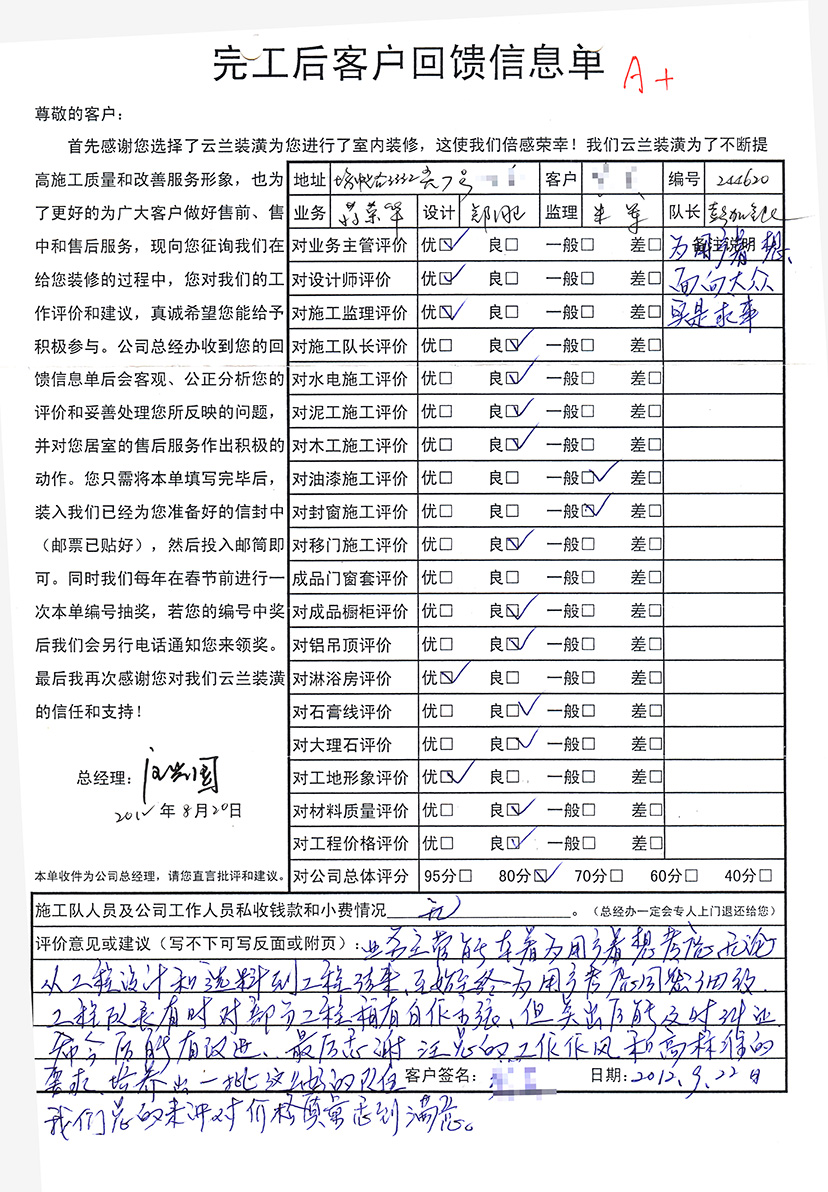 完工后客户回馈信息单 A+
尊敬的客户：
首先感谢您选择了云兰装潢为您进行了室内装修，这使我们倍感荣幸！我们云兰装潢为了不断提
高施工质量和改善服务形象，也为
了更好的为广大客户做好售前、售
中和售后服务，现向您征询我们在
给您装修的过程中，您对我们的工
作评价和建议，真诚希望您能给予
积极参与。公司总经办收到您的回
馈信息单后会客观、公正分析您的
评价和妥善处理您所反映的问题，
并对您居室的售后服务作出积极的
动作。您只需将本单填写完毕后，
装入我们已经为您准备好的信封中
（邮票已贴好），然后投入邮筒即
可。同时我们每年在春节前进行一
次本单编号抽奖，若您的编号中奖
后我们会另行电话通知您来领奖。
最后我再次感谢您对我们云兰装潢
的信任和支持！
总经理：
2012年8月20日
本单收件为公司总经理，请您直言批评和建议。
地址 3332弄7号 客户 编号 244620
业务 设计 监理 队长
对业务主管评价 优☑ 良□ 一般□ 差□ 备注说明 为用户着想、
对设计师评价 优☑ 良□ 一般□ 差□ 面向大众
对施工监理评价 优☑ 良□ 一般□ 差□ 实是求事
对施工队长评价 优□ 良☑ 一般□ 差□
对水电施工评价 优□ 良☑ 一般□ 差□
对泥工施工评价 优□ 良☑ 一般□ 差□
对木工施工评价 优□ 良☑ 一般□ 差□
对油漆施工评价 优□ 良□ 一般☑ 差□
对封窗施工评价 优□ 良□ 一般☑ 差□
对移门施工评价 优□ 良☑ 一般□ 差□
成品门窗套评价 优□ 良□ 一般□ 差□
对成品橱柜评价 优□ 良☑ 一般□ 差□
对铝吊顶评价 优□ 良☑ 一般□ 差□
对淋浴房评价 优☑ 良□ 一般□ 差□
对石膏线评价 优□ 良☑ 一般□ 差□
对大理石评价 优□ 良☑ 一般□ 差□
对工地形象评价 优☑ 良□ 一般□ 差□
对材料质量评价 优□ 良☑ 一般□ 差□
对工程价格评价 优□ 良☑ 一般□ 差□
对公司总体评分 95分□ 80分☑ 70分□ 60分□ 40分□
施工队人员及公司工作人员私收钱款和小费情况 无 。（总经办一定会专人上门退还给您）
评价意见或建议（写不下可写反面或附页）：业务主管能本着为用户着想考虑无论
从工程设计和选料到工程结束，自始至终为用户考虑周密细致.
工程队长有时对部分工程稍有自作主张、但关出后能及时纠正
希今后能有改进、最后感谢汪总的工作作风和高标准的
要求、培养出一批这样的队伍 客户签名： 日期：2012.9.22日
我们总的来讲对价格质量感到满意。